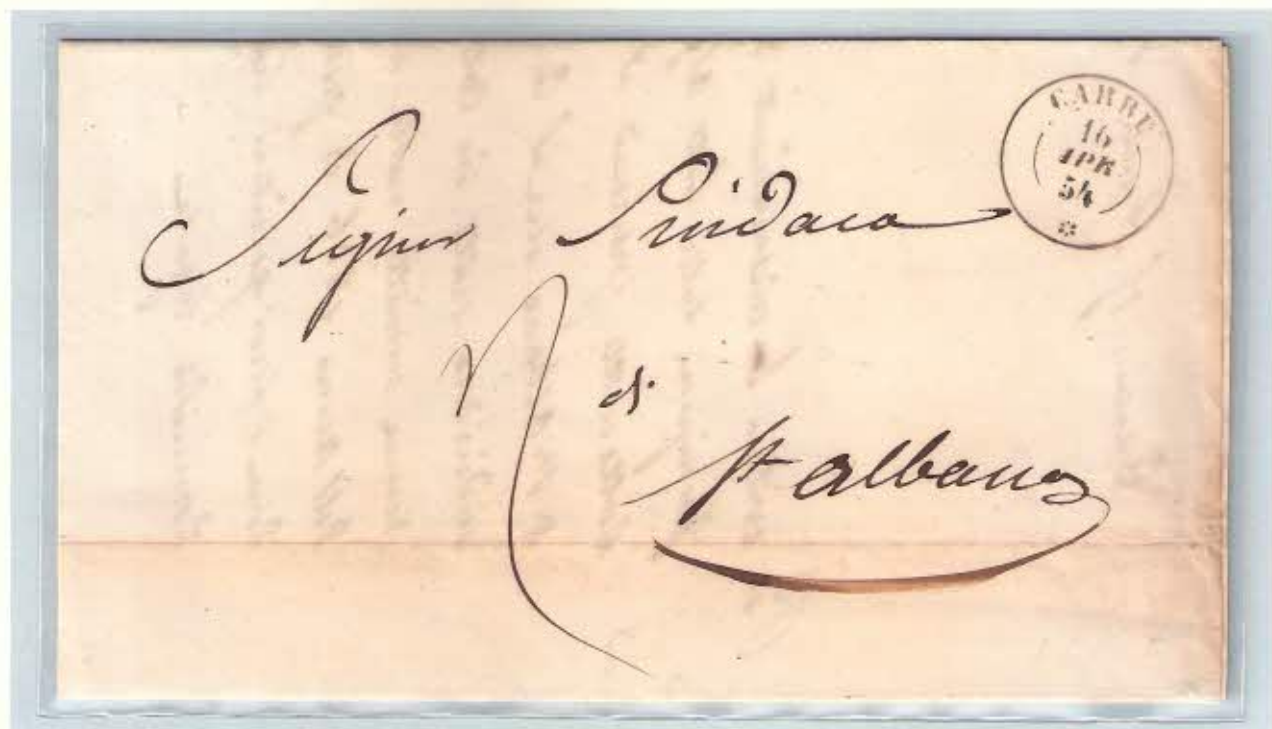 CARRÙ
16
APR
54
Signor Sindaco
di
St Albano